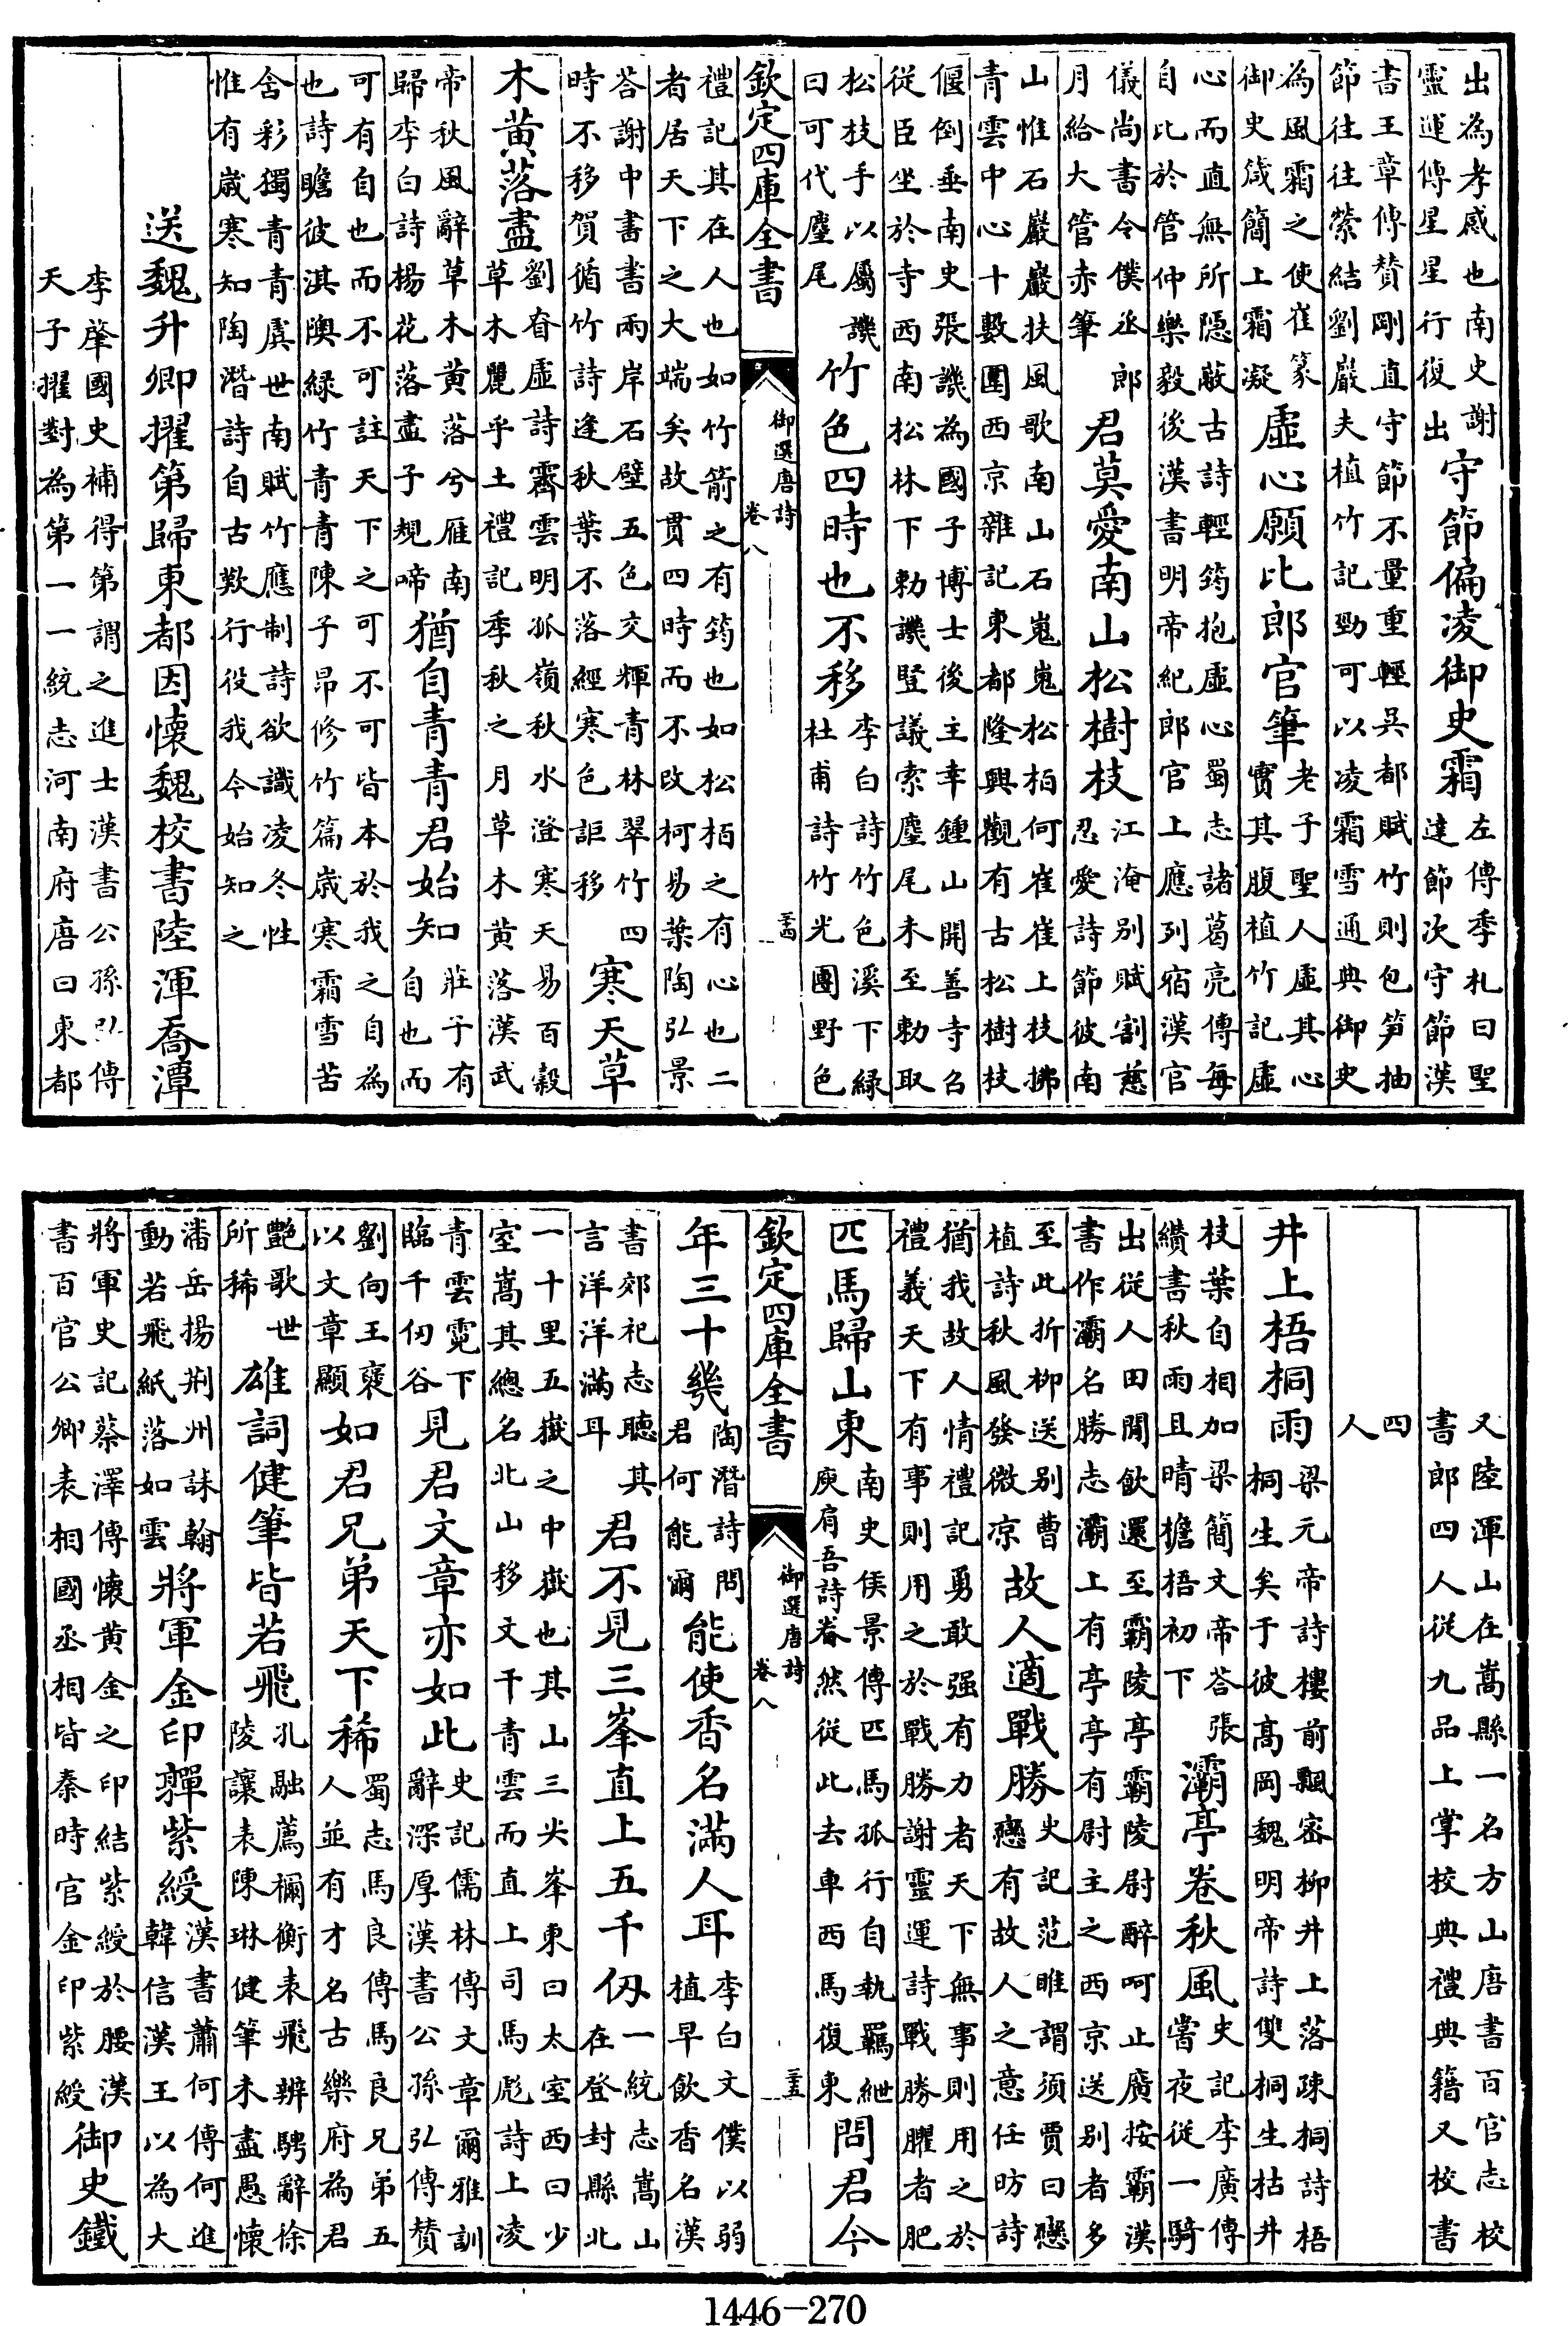 出為孝感也南史謝靈運傳星星行復出守節偏凌御史霜左傳季札曰聖達節次守節漢
書王章傳贊剛直守節不量重輕吳都賦竹則包笋抽節往往縈結劉巖夫植竹記勁可以凌霜雪通典御史
為風霜之使崔篆御史箴簡上霜凝虛心願比郎官筆老子聖人虛其心實其腹植竹記虛
心而直無所隠蔽古詩輕筠抱虛心蜀志諸葛亮傳每自比於管仲樂毅後漢書明帝紀郎官上應列宿漢官
儀尚書令僕丞郎月給大管赤筆君莫愛南山松樹枝江淹别賦割慈忍愛詩節彼南
山惟石巖巖扶風歌南山石嵬嵬松栢何崔崔上枝拂青雲中心十數圍西京雜記東都隆興觀有古松樹枝
偃倒垂南史張譏為國子博士後主幸鍾山開善寺召從臣坐於寺西南松林下勅譏豎議索麈尾未至勅取
松枝手以屬譏曰可代麈尾竹色四時也不移李白詩竹色溪下緑杜甫詩竹光團野色
欽定四庫全書 御選唐詩 卷八 三十四
禮記其在人也如竹箭之有筠也如松栢之有心也二者居天下之大端矣故貫四時而不改柯易葉陶弘景
答謝中書書兩岸石壁五色交輝青林翠竹四時不移賀循竹詩逢秋葉不落經寒色詎移寒天草
木黄落盡劉昚虛詩霽雲明孤嶺秋水澄寒天易百穀草木麗乎土禮記季秋之月草木黄落漢武
帝秋風辭草木黄落兮雁南歸李白詩楊花落盡子規啼猶自青青君始知莊子有自也而
可有自也而不可註天下之可不可皆本於我之自為也詩瞻彼淇隩緑竹青青陳子昂修竹篇歳寒霜雪苦
含彩獨青青虞世南賦竹應制詩欲識凌冬性惟有歳寒知陶潛詩自古歎行役我今始知之
送魏升卿擢第歸東都因懷魏校書陸渾喬潭
李肇國史補得第謂之進士漢書公孫弘傳天子擢對為第一一統志河南府唐曰東都
又陸渾山在嵩縣一名方山唐書百官志校書郎四人從九品上掌校典禮典籍又校書
四人
井上梧桐雨梁元帝詩樓前飄密柳井上落疎桐詩梧桐生矣于彼高岡魏明帝詩雙桐生枯井
枝葉自相加梁簡文帝答張纘書秋雨且晴檐梧初下灞亭卷秋風史記李廣傳嘗夜從一騎
出從人田間飲還至霸陵亭霸陵尉醉呵止廣按霸漢書作灞名勝志灞上有亭亭有尉主之西京送别者多
至此折柳送别曹植詩秋風發微凉故人適戰勝史記范睢謂須賈曰戀戀有故人之意任昉詩
猶我故人情禮記勇敢强有力者天下無事則用之於禮義天下有事則用之於戰勝謝靈運詩戰勝臞者肥
匹馬歸山東南史侯景傳匹馬孤行自執羈紲庾肩吾詩眷然從此去車西馬復東問君今
欽定四庫全書 御選唐詩 卷八 三十五
年三十幾陶潛詩問君何能爾能使香名滿人耳李白文僕以弱植早飲香名漢
書郊祀志聽其言洋洋滿耳君不見三峯直上五千仭一統志嵩山在登封縣北
一十里五嶽之中嶽也其山三尖峯東曰太室西曰少室嵩其總名北山移文干青雲而直上司馬彪詩上凌
青雲霓下臨千仞谷見君文章亦如此史記儒林傳文章爾雅訓辭深厚漢書公孫弘傳贊
劉向王褒以文章顯如君兄弟天下稀蜀志馬良傳馬良兄弟五人並有才名古樂府為君
艷歌世所稀雄詞健筆皆若飛孔融薦禰衡表飛辨騁辭徐陵讓表陳琳健筆未盡愚懷
潘岳揚荆州誄翰動若飛紙落如雲將軍金印嚲紫綬漢書蕭何傳何進韓信漢王以為大
將軍史記蔡澤傳懷黄金之印結紫綬於腰漢書百官公卿表相國丞相皆秦時官金印紫綬御史鐵
1446-270